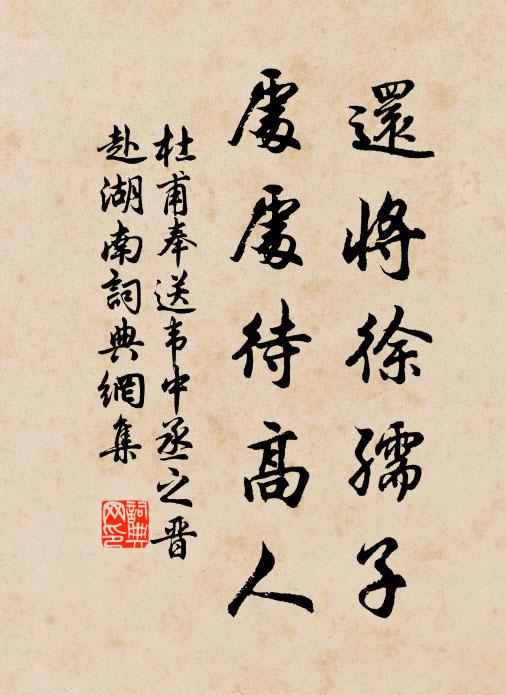 還將徐孺子
處處待高人
杜甫奉送韦中丞之晋
赴湖南詞典網集
詞典网印